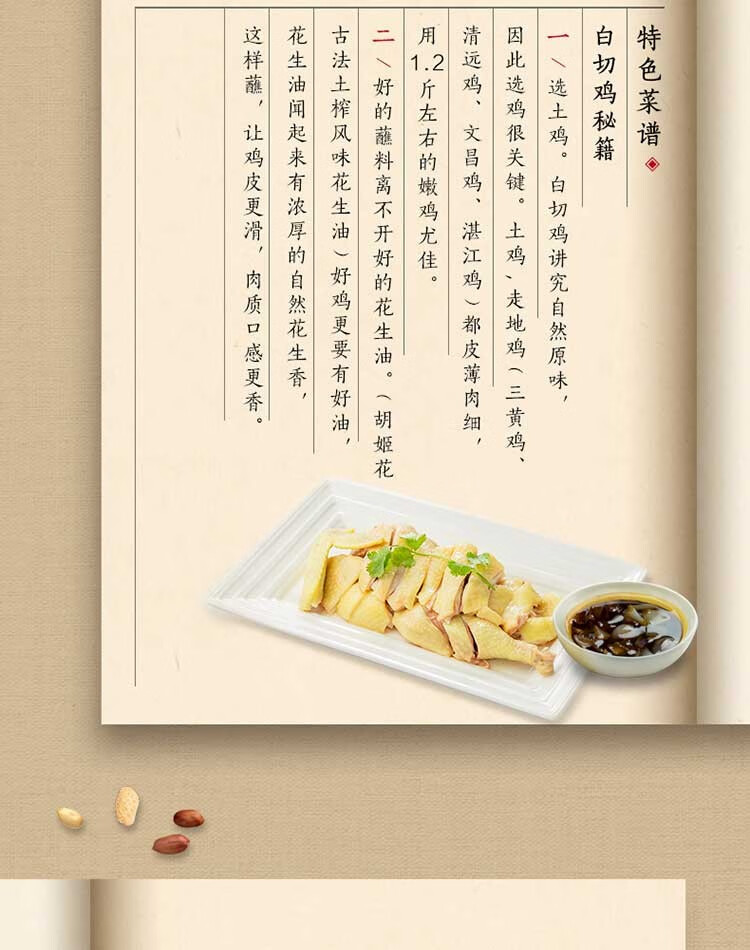 特色菜谱
白切鸡秘籍
一\选土鸡。白切鸡讲究自然原味，
因此选鸡很关键。土鸡、走地鸡（三黄鸡、
清远鸡、文昌鸡、湛江鸡）都皮薄肉细，
用1.2斤左右的嫩鸡尤佳。
二\好的蘸料离不开好的花生油。（胡姬花
古法土榨风味花生油）好鸡更要有好油，
花生油闻起来有浓厚的自然花生香，
这样蘸，让鸡皮更滑，肉质口感更香。